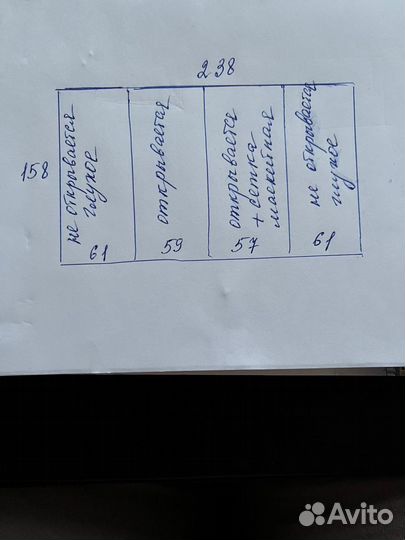 238
158
не открывается
глухое
61
открывается
59
открывается
+ сетка
маскитная
57
не открывается
глухое
61
Avito